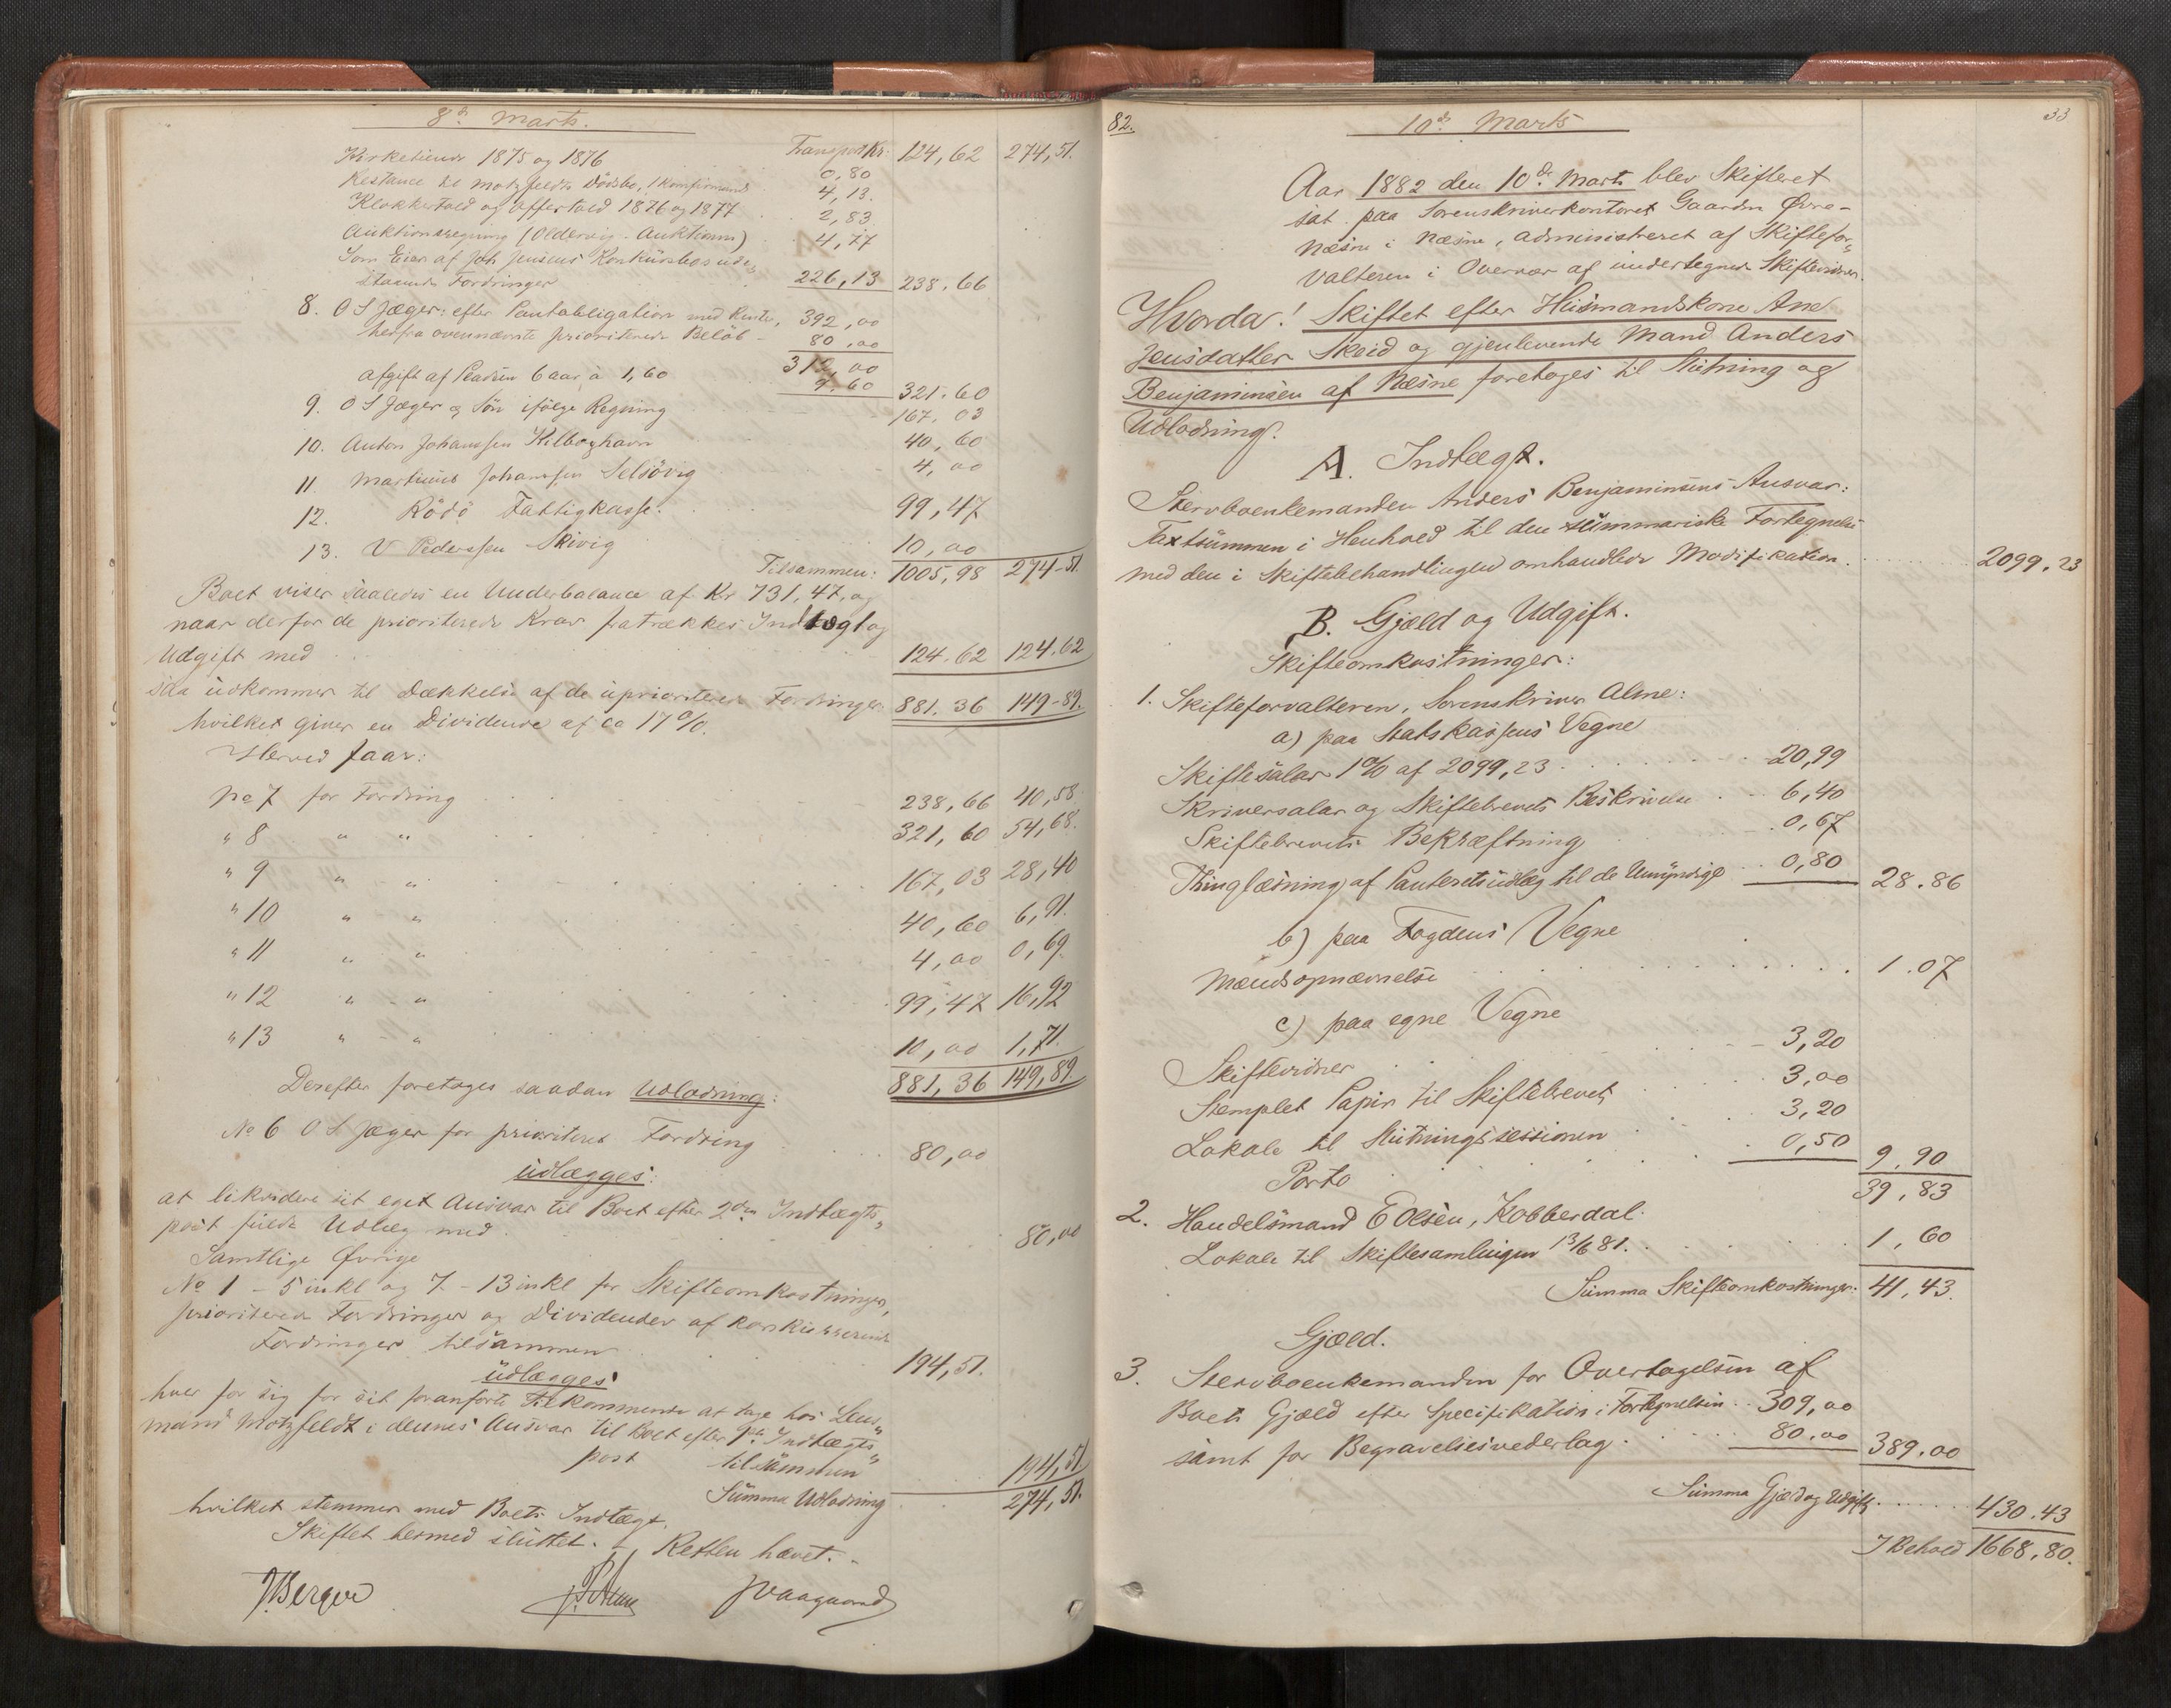 8de Marts.
Transport Kr. 124,62 274,51.
Kirketiende 1875 og 1876 0,80
Restance til Motzfeldts Dödsbo, 1 Konfirmand 4,13.
Klokkertold og Offertold 1876 og 1877 2,83
Auktionsregning (Oldervig-Auktionen) 4,77
Som Eier af Joh Jensens Konkursbos ude-
staaende Fordringer 226,13 238.66
8. O S Jæger: efter Pantobligation med Rente, 392,00
herfra ovennævnte prioriterede Belöb - 80,00
312,00
Afgift af Pladsen 6 aar à 1,60 9,60 321.60
9. O S Jæger & Sön ifölge Regning 167,03
10. Anton Johanssen Kilboghavn 40,60
11. Martinus Johanssen Selsövig 4,00
12. Rödö Fattigkasse. 99,47
13. V Pederssen Skivig 10,00
Tilsammen: 1005,98 274-51.
Boet viser saaledes en Underbalance af Kr 731,47, og
naar derfor de prioriterede Krav fratrækkes Indtægt og
Udgift med 124.62 124.62
saa udkommer til Dækkelse af de uprioriterede Fordringer 881.36 149-89.
hvilket giver en Dividende af ca 17%.
Herved faar:
No 7 for Fordring 238,66 40,58
" 8 " " 321,60 54,68.
" 9 " " 167,03 28,40
" 10 " " 40,60 6,91.
" 11 " " 4,00 0,69.
" 12 " " 99,47 16,92
" 13 " " 10,00 1,71.
881,36 149,89
Derefter foretages saadan Udlodning:
No 6 O S Jæger for prioriteret Fordring 80,00
udlægges:
at likvidere sit eget Ansvar til Boet efter 2den Indtægts-
post fuldt Udlæg med 80,00
Samtlige Övrige
No 1 - 5 inkl og 7 - 13 inkl for Skifteomkostninger,
prioriterede Fordringer og Dividender af konkurrerende
Fordringer tilsammen 194,51.
udlægges
hver for sig for sit foranförte Tilkommende at tage hos Lens-
mand Motzfeldt i dennes Ansvar til Boet efter 1ste Indtægts-
post tilsammen 194,51
Summa Udlodning 274,51.
hvilket stemmer med Boets Indtægt.
Skiftet hermed sluttet. - Retten hævet. -
JBerger JVaagaard
82. 10de Marts 33
Aar 1882 den 10de Marts blev Skifteret
sat paa Sorenskriverkontoret Gaarden Övre-
Næsne i Næsne, administreret af Skiftefor-
valteren i Overvær af undertegnede Skiftevidner.
Hvorda! Skiftet efter Husmandskone Ane
Jensdatter Skeid og gjenlevende Mand Anders
Benjaminsen af Næsne foretoges til Slutning og
Udlodning.
A. Indtægt.
Stervboenkemanden Anders Benjaminsens Ansvar:
Taxtsummen i Henhold til den summariske Fortegnelse
med den i Skiftebehandlingen omhandlede Modifikation. 2099.23
B. Gjæld og Udgift.
Skifteomkostninger:
1. Skifteforvalteren, Sorenskriver Alme:
a) paa Statskassens Vegne
Skiftesalar 1% af 2099,23 20,99
Skriversalar og Skiftebrevets Beskrivelse 6,40
Skiftebrevets Bekræftning 0,67
Thinglæsning af Panteretsudlæg til de Umyndige 0,80 28.86
b) paa Fogdens Vegne
Mændsopnævnelse 1.07
c) paa egne Vegne
Skiftevidner 3,20
Stemplet Papir til Skiftebrevet 3,00
Lokale til Slutningssessionen 3,20
Porto 0,50 9.90
39,83
2. Handelsmand E Olsen, Kobberdal.
Lokale til Skiftesamlingen 13/6 81. 1,60
Summa Skifteomkostninger: 41,43.
Gjæld.
3. Stervboenkemanden for Overtagelsen af
Boets Gjæld efter Specifikation i Fortegnelsen 309,00
samt for Begravelsesvederlag. 80.00 389.00
Summa Gjæld og Udgift 430.43
I Behold 1668,80.